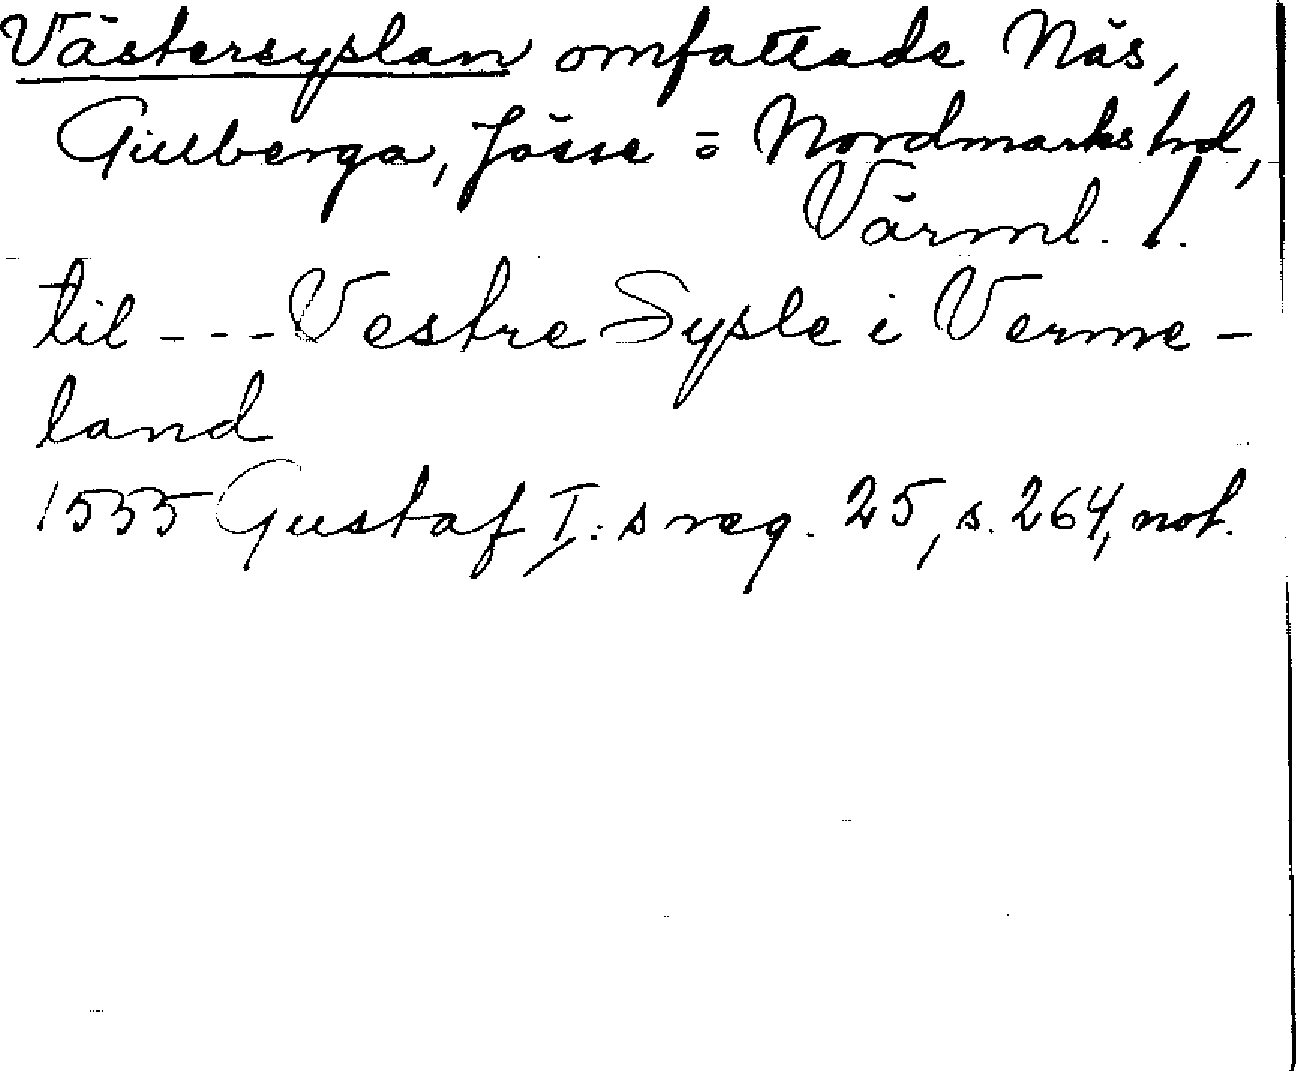 Västersyslan omfattade Näs,
Gillberga, Jösse o Nordmarks hrd,
Värml. l.
til - - - Vestre Sysle i Verme-
land
1555 Gustaf I:s reg. 25, s. 264, not.